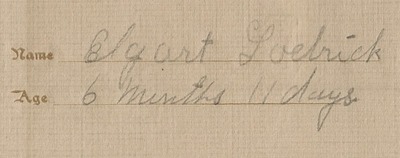 Name Elgart Loelrick
Age 6 Months 11 days